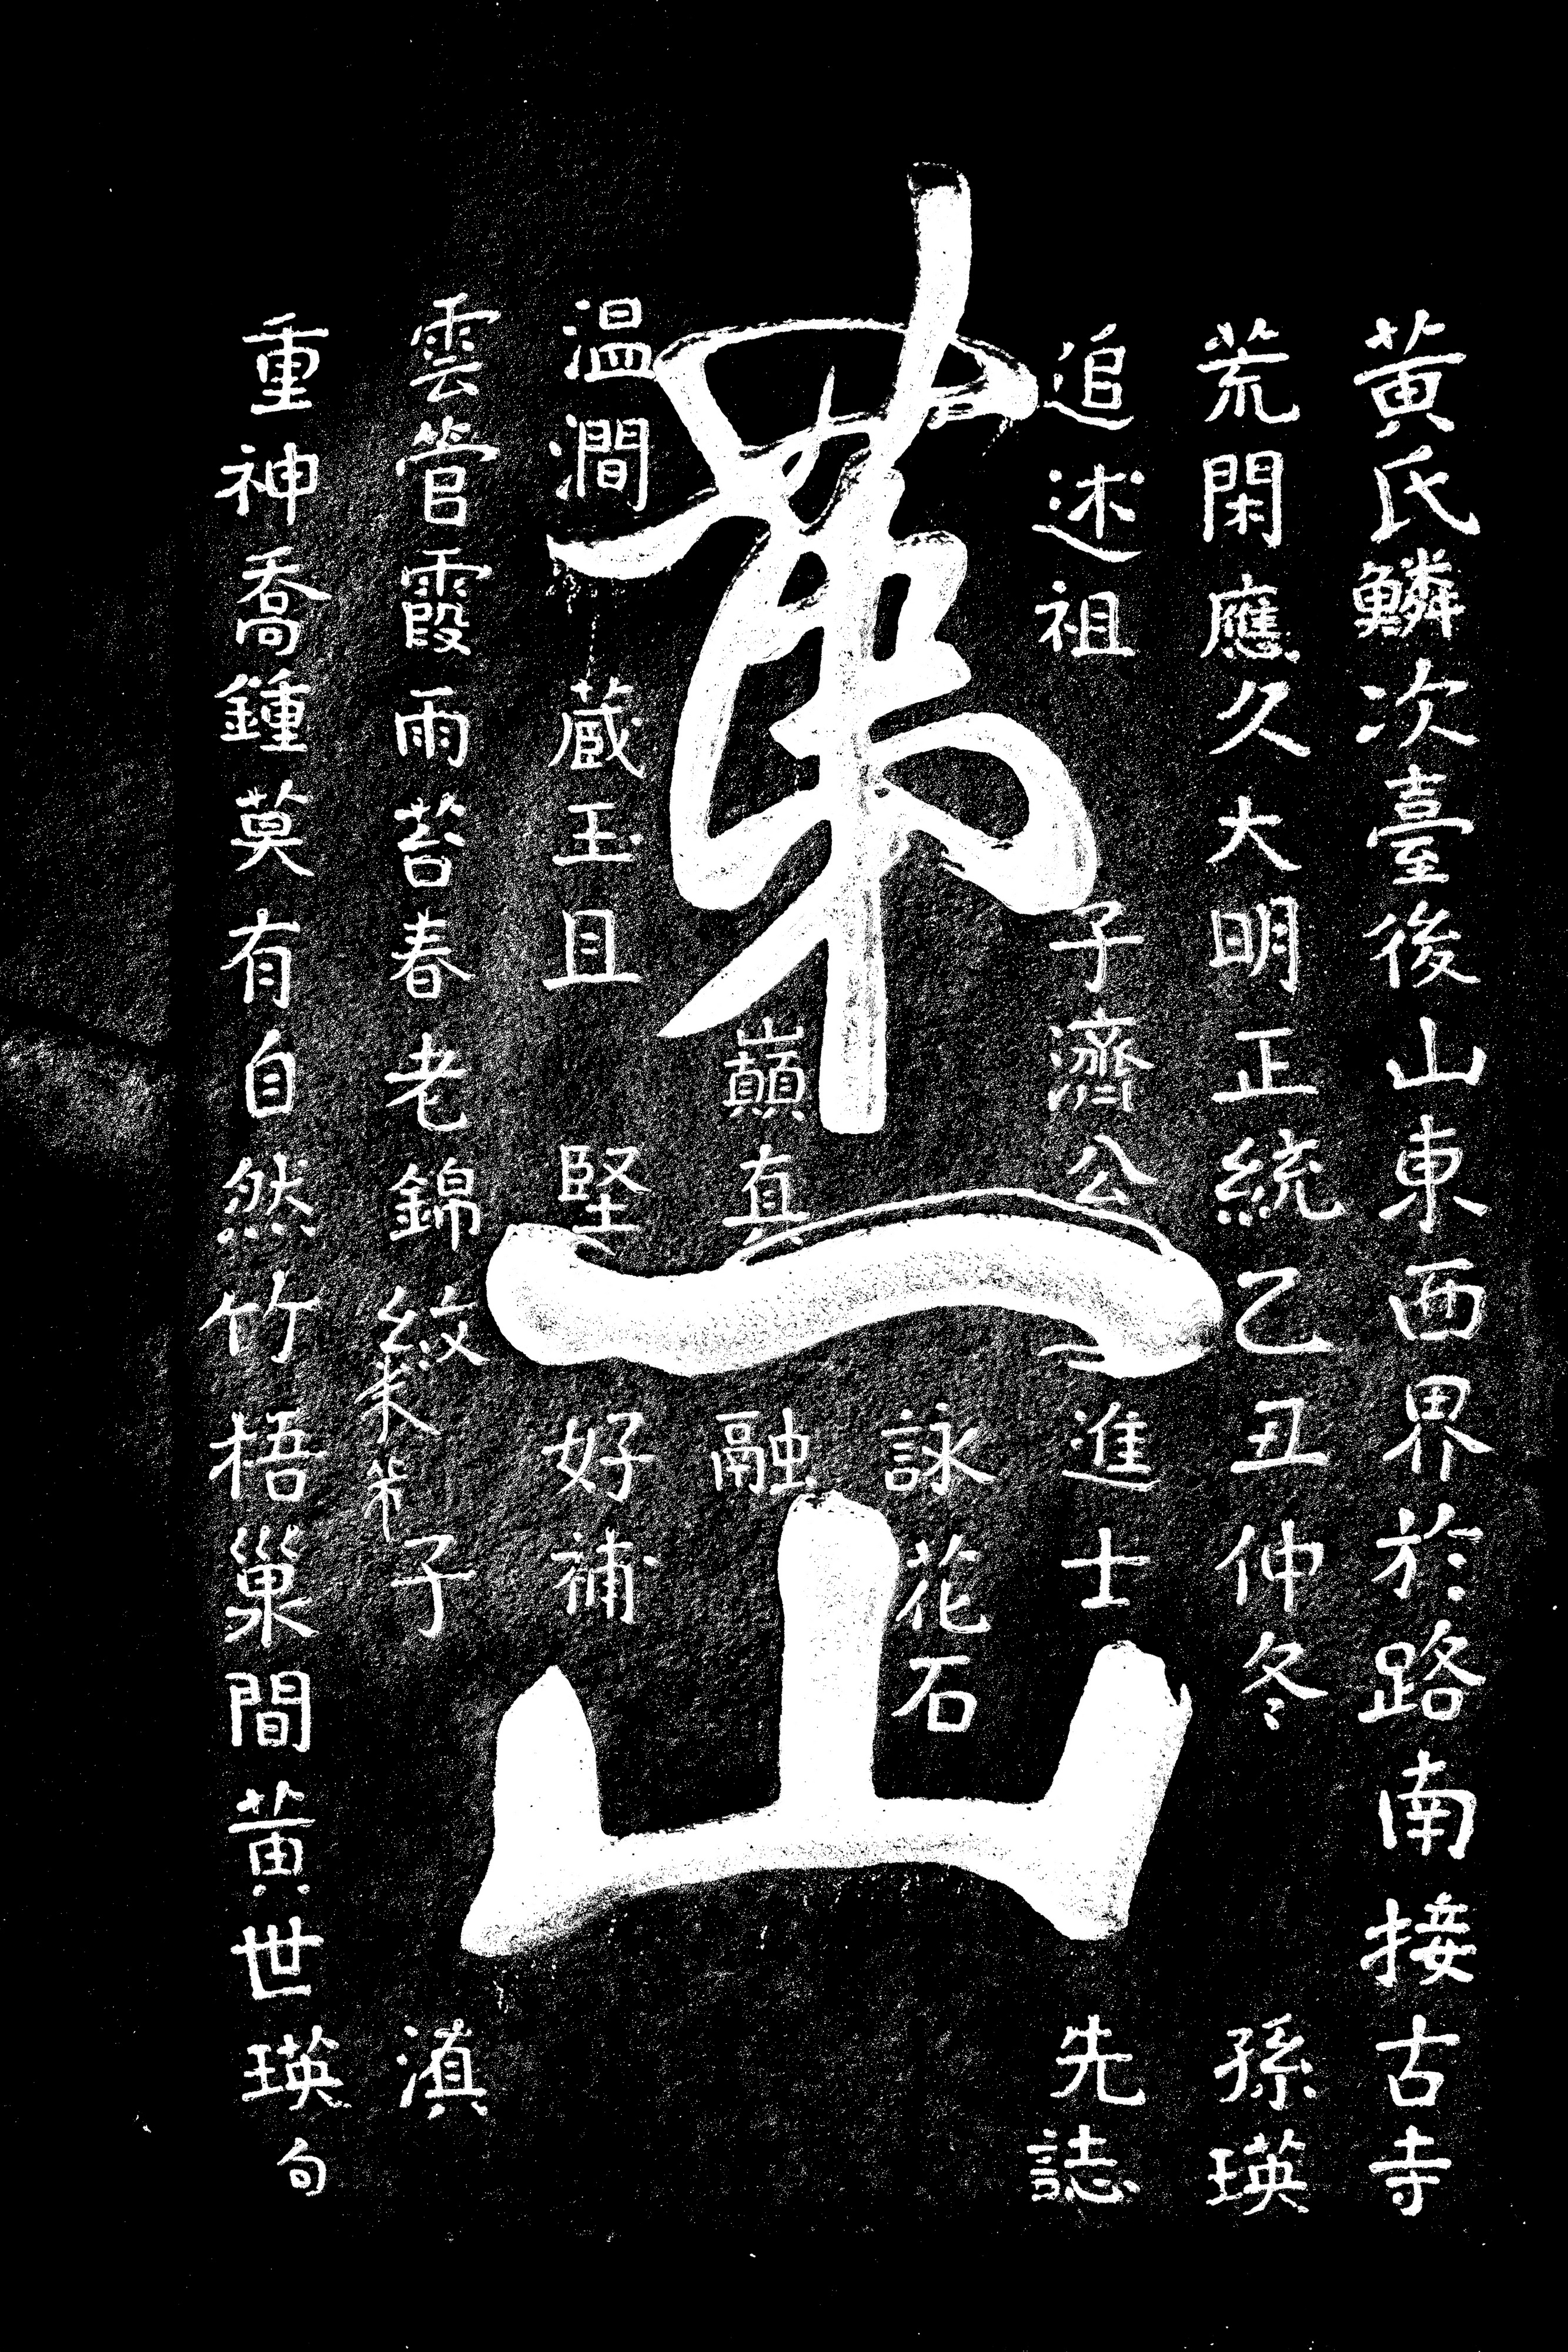 黄氏鱗次臺後山東西界於路南接古寺
荒閑應久大明正統乙丑仲冬孫瑛
追述祖子濟公進士先誌
詠花石
第一山
巔真融
温澗蔵玉且堅好補
雲管霞雨苔春老錦紋子滇
米芾
重神喬鍾莫有自然竹梧巢間黄世瑛句